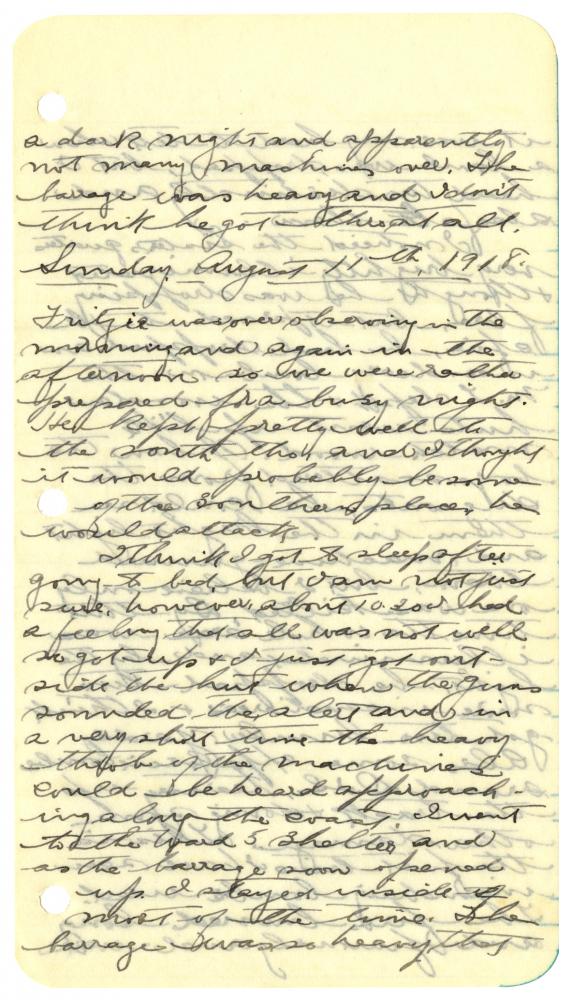 a dark night and apparently
not many machines over. The
barrage was heavy and I don't
think he got thro at all.
Sunday, August 11th, 1918.
Fritzie was over observing in the
morning and again in the
afternoon so we were rather
prepared for a busy night.
He kept pretty well to
the south tho, and I thought
it would probably be some
of the Southern places he
would attack.
I think I got to sleep after
going to bed, but I am not just
sure, however, about 10.20 I had
a feeling that all was not well
so got up & I just got out-
side the hut when the guns
sounded the alert and in
a very short time the heavy
throb of the machines
could be heard approach-
ing along the coast. I went
to the ward 5 shelter and
as the barrage soon opened
up I stayed inside
most of the time. The
barrage was so heavy that